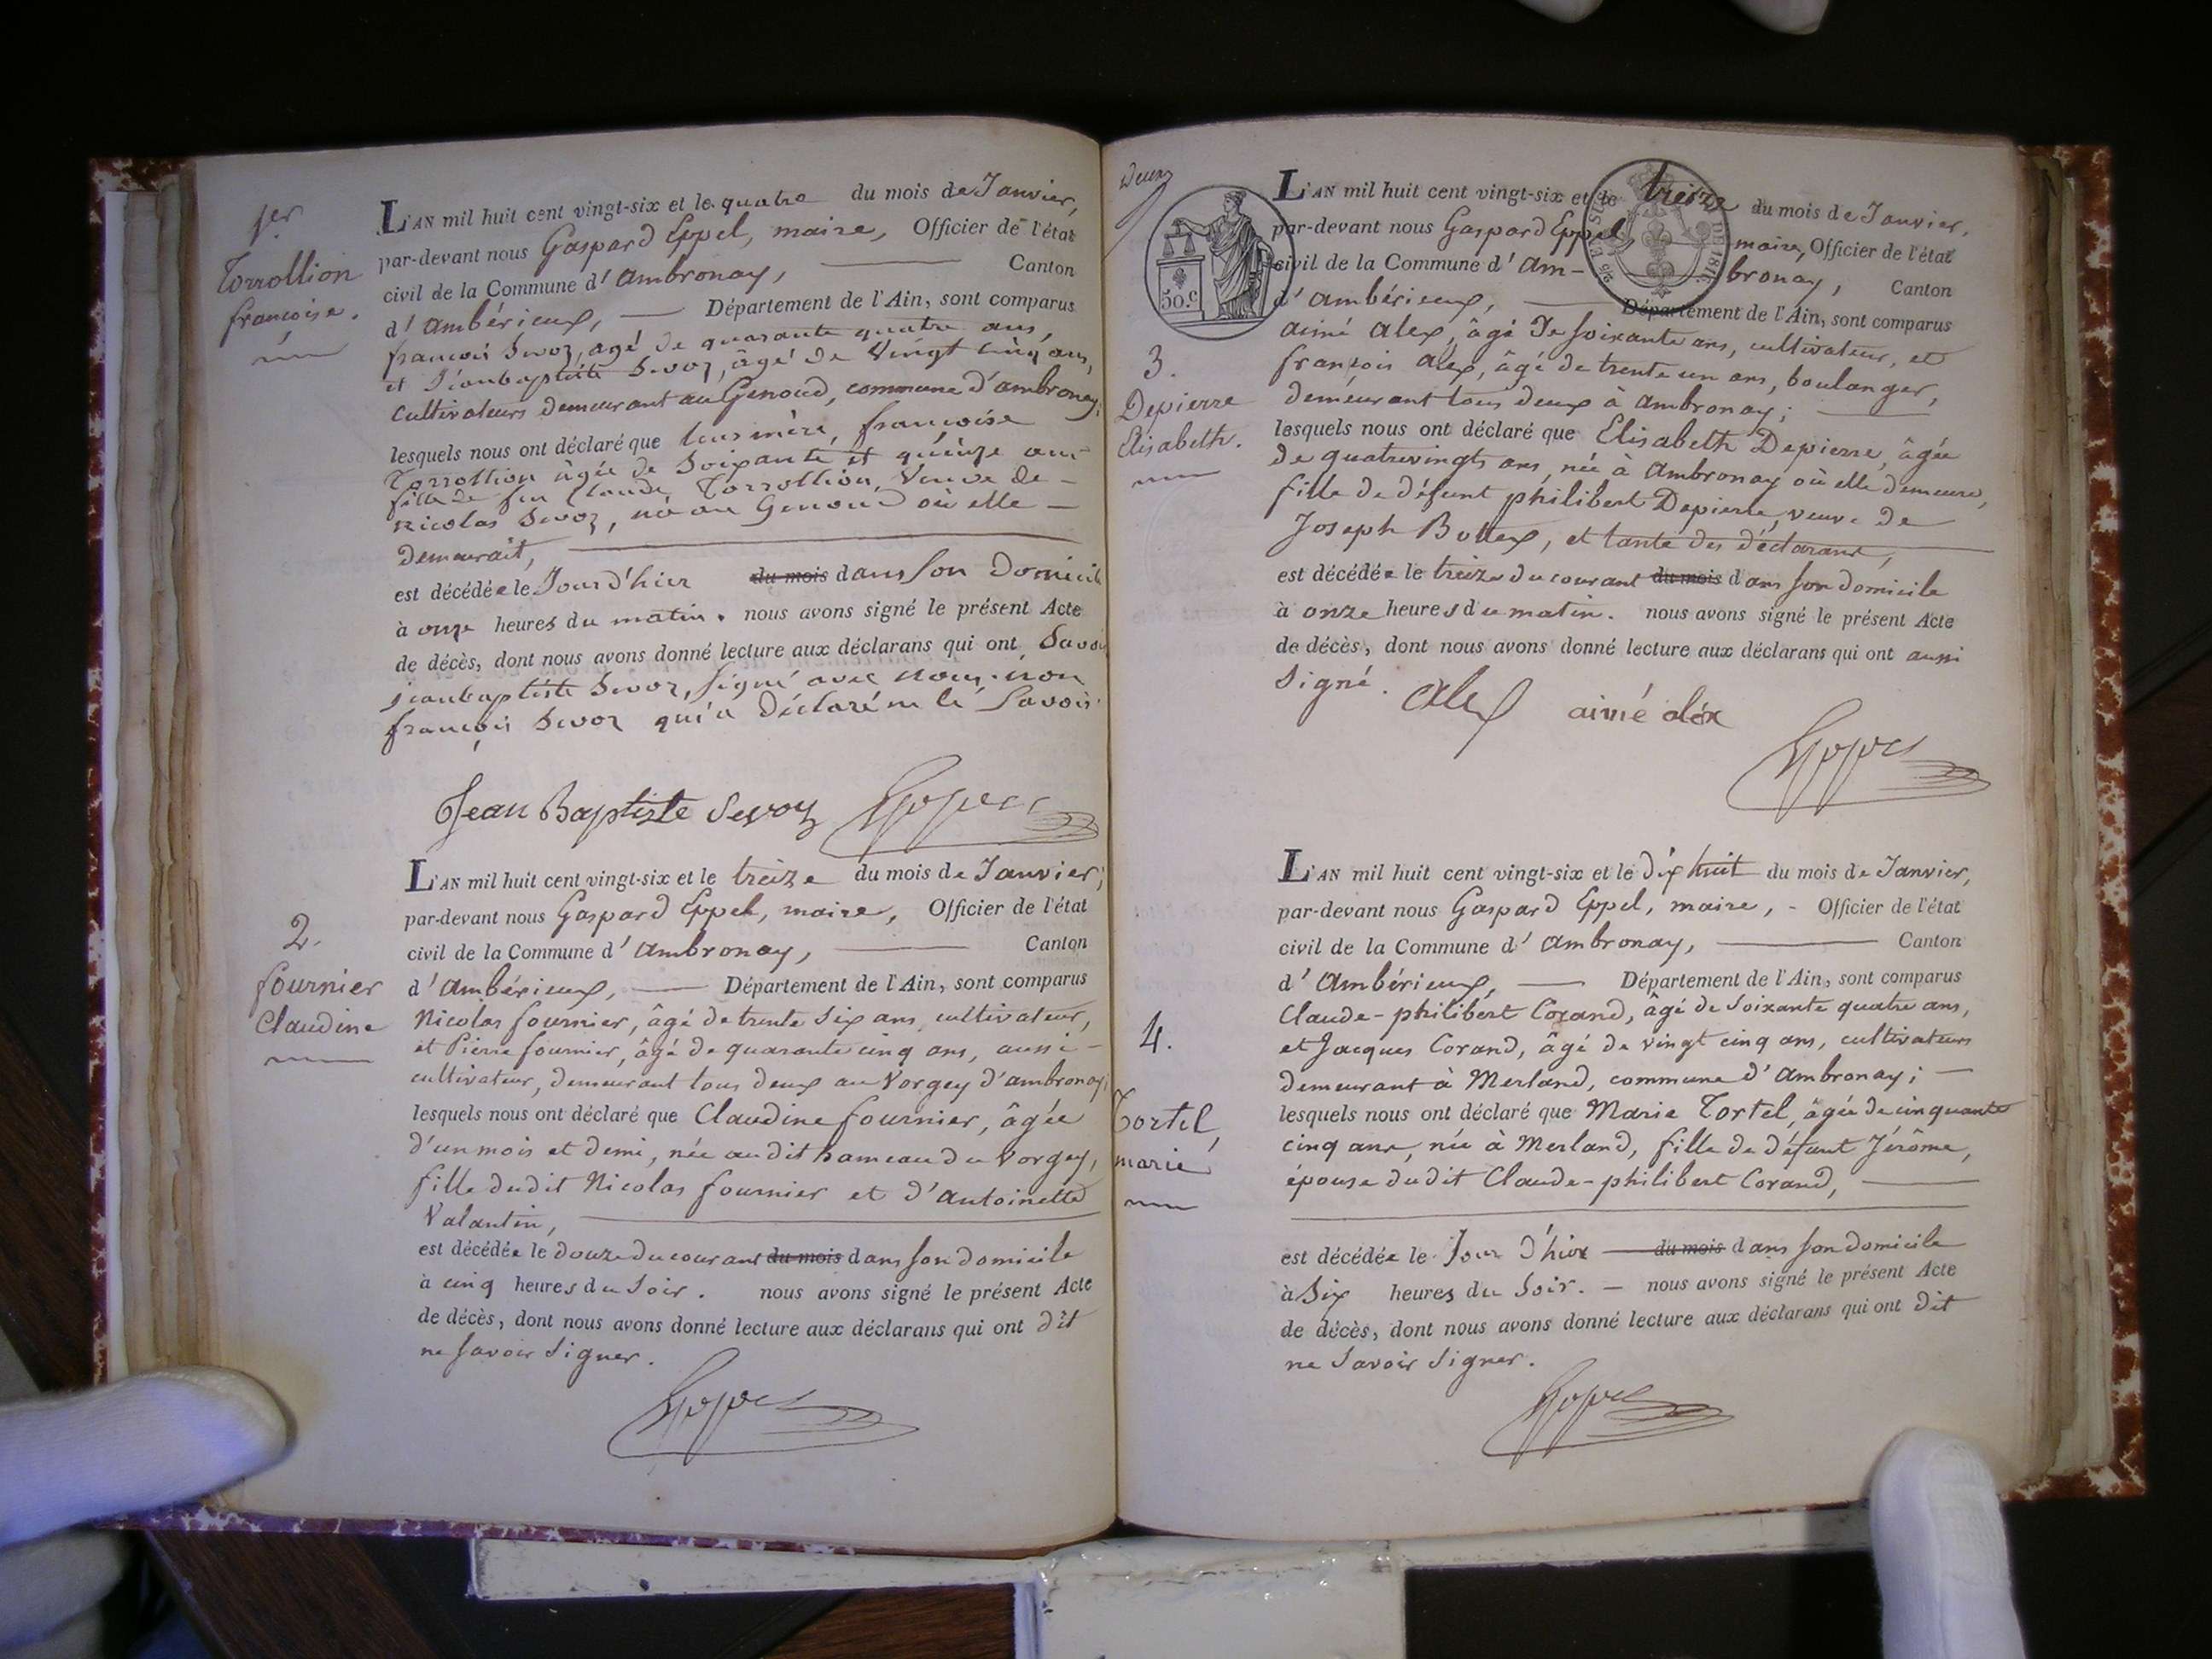 1er
Torrollion
francoise.
L'AN mil huit cent vingt-six et le quatre du mois de Janvier,
par-devant nous Gaspard Eppel, maire, Officier de l'état
civil de la Commune d'ambronay, Canton
d'ambérieux, Département de l'Ain, sont comparus
françois Sevoz, agé de quarante quatre ans,
et Jeanbaptiste Sevoz, âgé de Vingt cinq ans,
Cultivateurs demeurant au Genoud, commune d'ambronay;
lesquels nous ont déclaré que leur mère, françoise
Torrollion âgée de Soixante et quinze ans
fille de feu Claude Torrollion, Veuve de
Nicolas Sevoz, née au Genoud où elle
demeurait,
est décédée le Jour d'hier du mois dans son Domicile
à onze heures du matin. nous avons signé le présent Acte
de décès, dont nous avons donné lecture aux déclarans qui ont Savoir
jeanbaptiste Sevoz, signé avec nous, non
françois Sevoz qui a déclaré ne le Savoir
Jean Baptiste Sevoz
2.
fournier
Claudine
L'AN mil huit cent vingt-six et le treize du mois de Janvier;
par-devant nous Gaspard Eppel, maire, Officier de l'état
civil de la Commune d'ambronay, Canton
d'ambérieux, Département de l'Ain, sont comparus
Nicolas fournier, âgé de trente Six ans, cultivateur,
et Pierre fournier, âgé de quarante cinq ans, aussi
cultivateur, demeurant tous deux au Vorgey d'ambronay;
lesquels nous ont déclaré que Claudine fournier, âgée
d'un mois et demi, née au dit hameau du Vorgey,
fille dudit Nicolas fournier et d'antoinette
Valantin,
est décédée le douze du courant du mois dans son domicile
à cinq heures du Soir. nous avons signé le présent Acte
de décès, dont nous avons donné lecture aux déclarans qui ont dit
ne savoir signer.
deux
50.c
3.
Depierre
Elisabeth.
L'AN mil huit cent vingt-six et le treize du mois de Janvier,
par-devant nous Gaspard Eppel, maire, Officier de l'état
civil de la Commune d'am-bronay, Canton
d'ambérieux, Département de l'Ain, sont comparus
aimé alex, âgé de soixante ans, cultivateur, et
françois alex, âgé de trente un ans, boulanger,
demeurant tous deux à ambronay;
lesquels nous ont déclaré que Elisabeth Depierre, âgée
de quatrevingts ans, née à ambronay où elle demeure,
fille de défunt philibert Depierre, veuve de
Joseph Bottex, et tante des déclarans,
est décédée le treize du courant du mois dans son domicile
à onze heures du matin. nous avons signé le présent Acte
de décès, dont nous avons donné lecture aux déclarans qui ont aussi
Signé.
Alex aimé aléx
4.
Tortel,
marie
L'AN mil huit cent vingt-six et le dix huit du mois de Janvier,
par-devant nous Gaspard Eppel, maire, Officier de l'état
civil de la Commune d'ambronay, Canton
d'Ambérieux, Département de l'Ain, sont comparus
Claude-philibert Corand, âgé de Soixante quatre ans,
et Jacques Corand, âgé de vingt cinq ans, cultivateurs
demeurant à Merland, commune d'ambronay;
lesquels nous ont déclaré que Marie Tortel, âgée de cinquante
cinq ans, née à Merland, fille de défunt Jérôme,
épouse dudit Claude-philibert Corand,
est décédée le Jour d'hier du mois dans son domicile
à Six heures du Soir. nous avons signé le présent Acte
de décès, dont nous avons donné lecture aux déclarans qui ont dit
ne Savoir Signer.